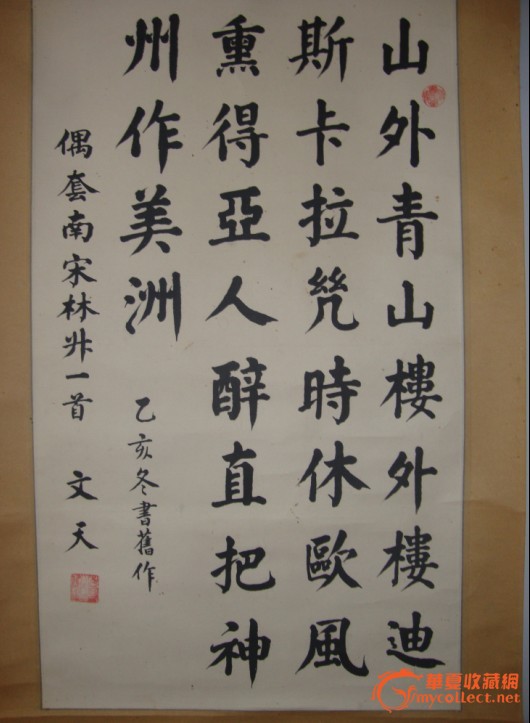 山外青山樓外樓迪
斯卡拉時休歐風
熏得亞人醉直把神
州作美洲
乙亥冬書舊作
偶套南宋林升一首 文天
華夏收藏網
mycollect.net